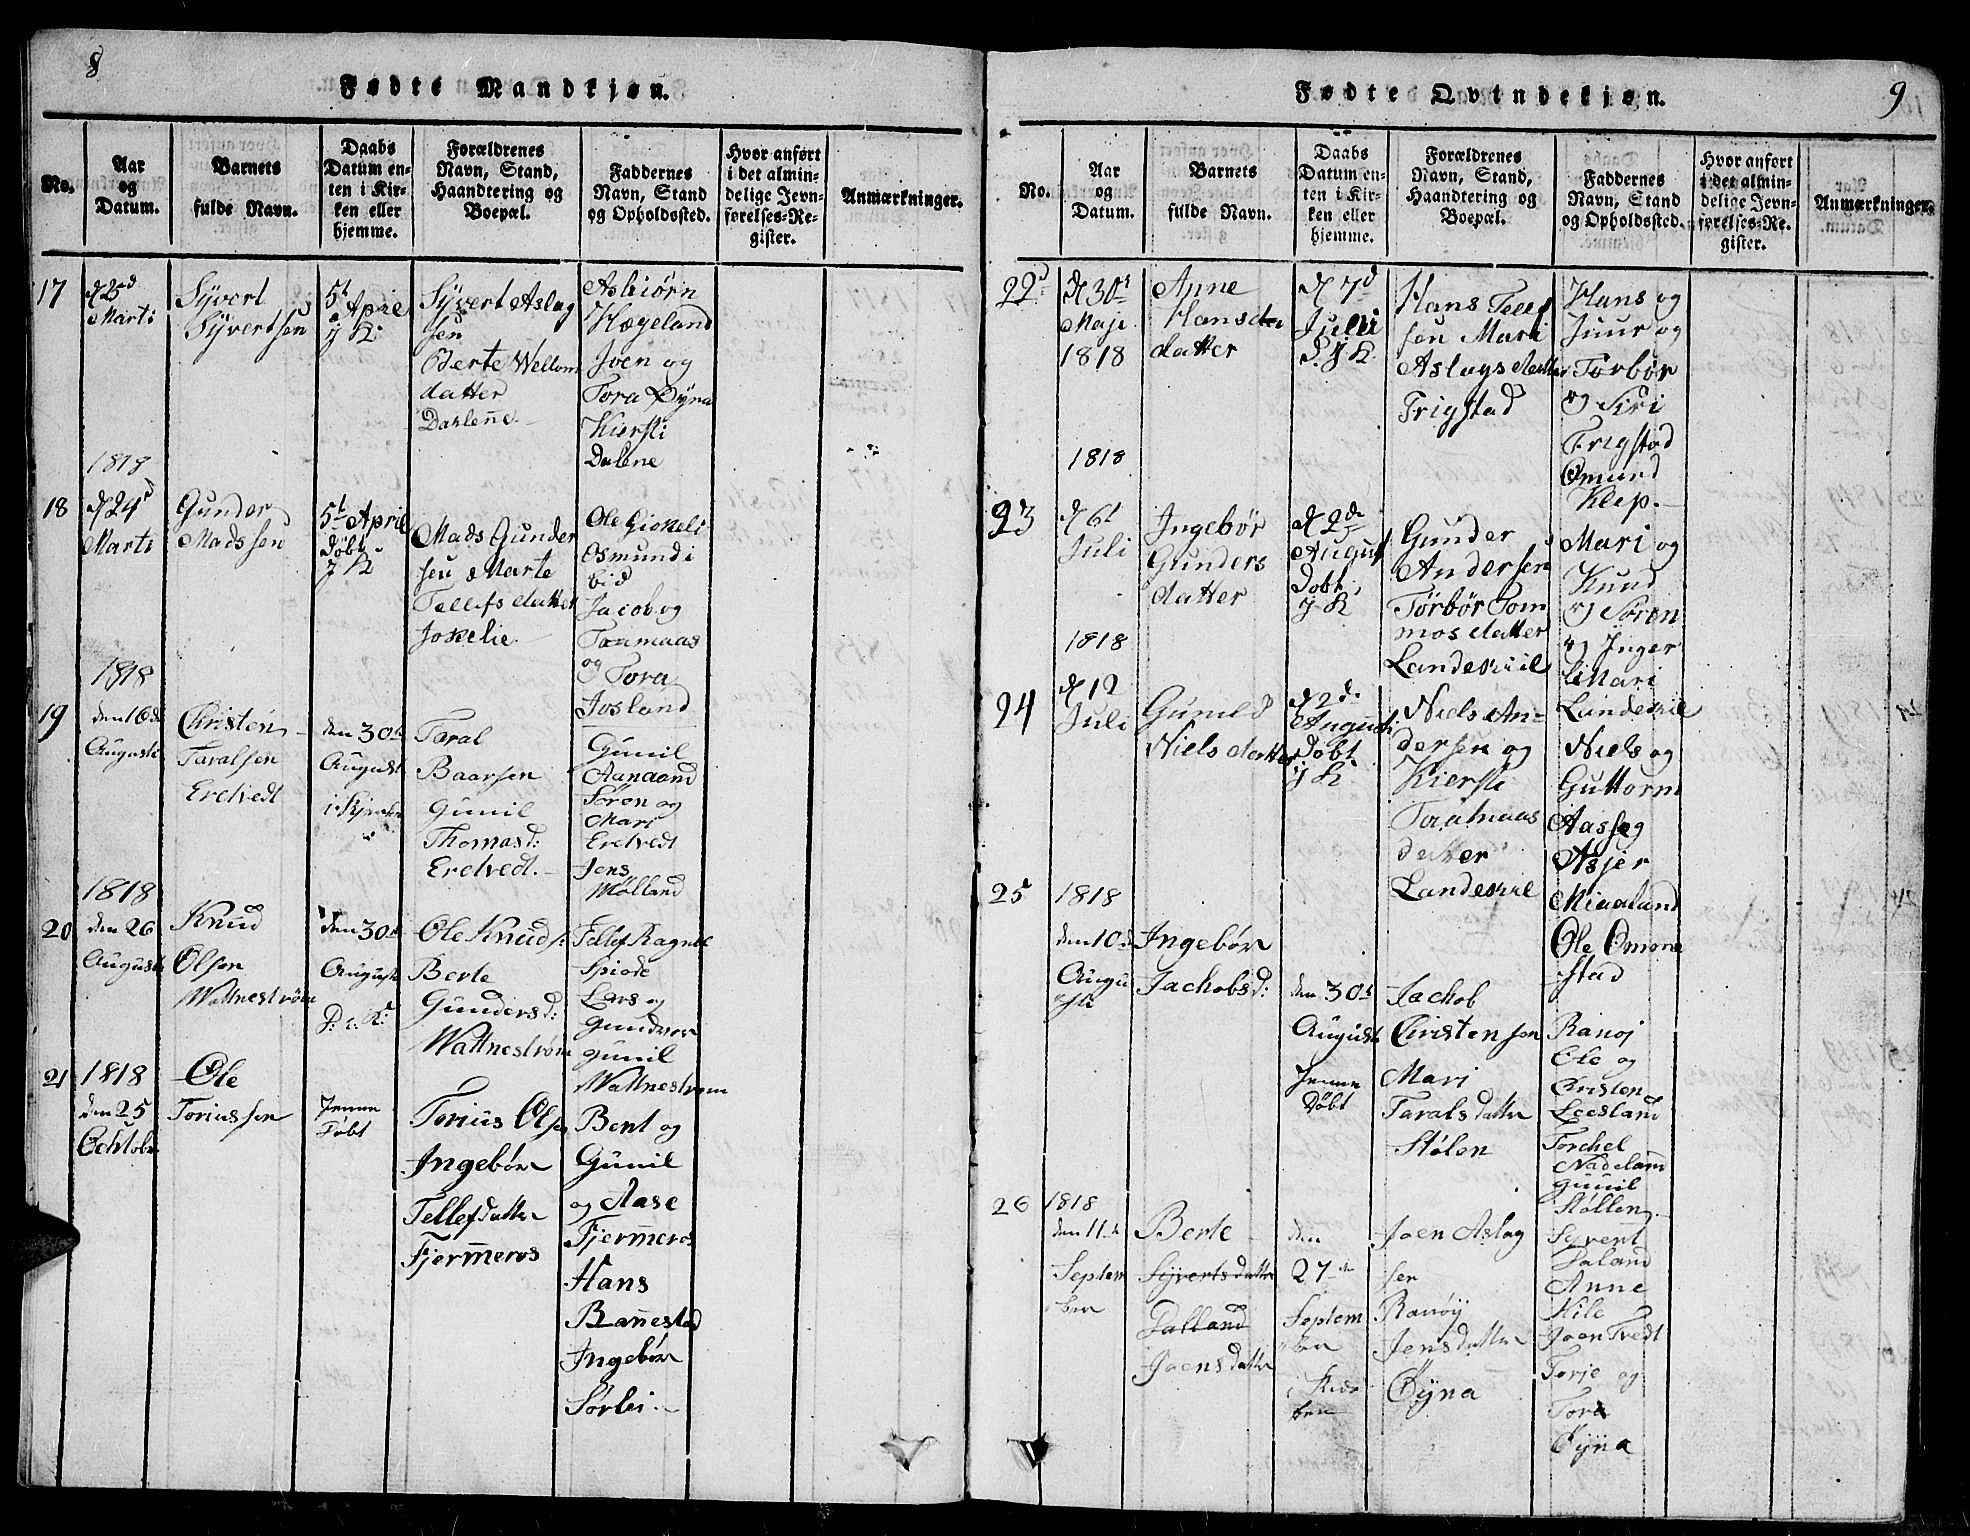 8
Fødte Mandkjøn.
No.
Aar
og
Datum.
Barnets
fulde Navn.
Daabs
Datum en-
ten i Kir-
ken eller
hjemme.
Forældrenes
Navn, Stand,
Haandtering og
Boepæl.
Faddernes
Navn, Stand
og Opholdssted.
Hvor anført
i det almin-
delige Jevn-
førelses-Re-
gister.
Anmærkninger.
17
Marti
Syvert
Syvertsen
5t
April
y K
Syvert Aslag
sen
Berte Wellom
datter
Dalene
Asbiørn
Hægeland
Joen og
Tora Øyna
Kiersti
Dalene
1818
18
d 24d
Marti
Gunder
Madssen
5t April
døbt
y K
Mads Gunder
sen Marte
Tellefsdatter
Joselie
Ole
Osmund i
bid
Jacob og
Toumaas
og Tora
Josland
1818
19
den 16de
Augusti
Christen
Taralsen
Eretvedt
den 30te
August
i Kjerken
Taral
Baarsen
Gunil
Thomasd:
Eretvedt.
Gunil
Aanaand
Søren og
Mari
Eretvedt
Jens
Mølland
1818
20
den 26
Augusti
Knud
Olsen
Wattnestrøm
den 30te
August
D: i: K:
Ole Knuds:
Berte
Gundersd:
Wattnestrøm
Tellef Ragnil
Spiode
Lars og
Gundvor
gunil
Wattnestrøm
21
1818
den 25
Ochtobr
Ole
Toriussen
Jemme
Føbt
Torius Olsen
Ingebør
Tellefdatter
Fjermeros
Bent og
Gunil
og Aase
Fjermeros
Hans
Bannestad
Ingebør
Sørlei
9
Fødte Qvindekjøn.
No.
Aar
og
Datum.
Barnets
fulde Navn.
Daabs
Datum en-
ten i Kir-
ken eller
hjemme.
Forældrenes
Navn, Stand,
Haandtering og
Boepæl.
Faddernes
Navn, Stand
og Opholdssted.
Hvor anført
i det almin-
delige Jevn-
førelses-Re-
gister.
Anmærkninger.
22d
d 30t
Maje
1818
Anne
Hansda
datter
d 7d
Juni
D. y K.
Hans Tellef
sen Mari
Aslagsdatter
Frigstad
Hans og
Juur og
Torbør
og Siri
Frigstad
Omund
Klep.
1818
23
d 6t
Juli
Ingebør
Gunders
datter
d 2de
August
Døbt
y K
Gunder
Andersen
Tørbør Tom
mosdatter
Landeskiil
Mari og
Knud
og Søren
og Inger
Mari
Landeskiil
1818
24
d 12
Juli
Guneld
Nielsdatter
d 2de
Augusti
Døbt
y K
Niels An-
dersen og
Kiersti
Toumaas
datter
Landeskiel
Niels og
Guttorm
Aasseg
Asjer
Miaaland
Ole Omdne
stad
25
1818
den 10de
Augu
sti
Ingebør
Jachobsd:
den 30te
August
Jemme
Døbt
Jachob
Christensen
Mari
Taralsdatter
Stølen
Ranøj
Ole og
Christen
Leesland
Torchel
Nadeland
gunil
Støllen
26
1818
den 11te
Septem
ber
Berte
Syvertsdatter
Dalland
Joensdatter
den
27de
Septem
ber
i Kier
ken
Joen Aslag
sen
Ranøy
Jensdatter
Øyna
Syvert
Daland
Anne
Kile
Joen Tvedt
Torje og
Tora
Øyna